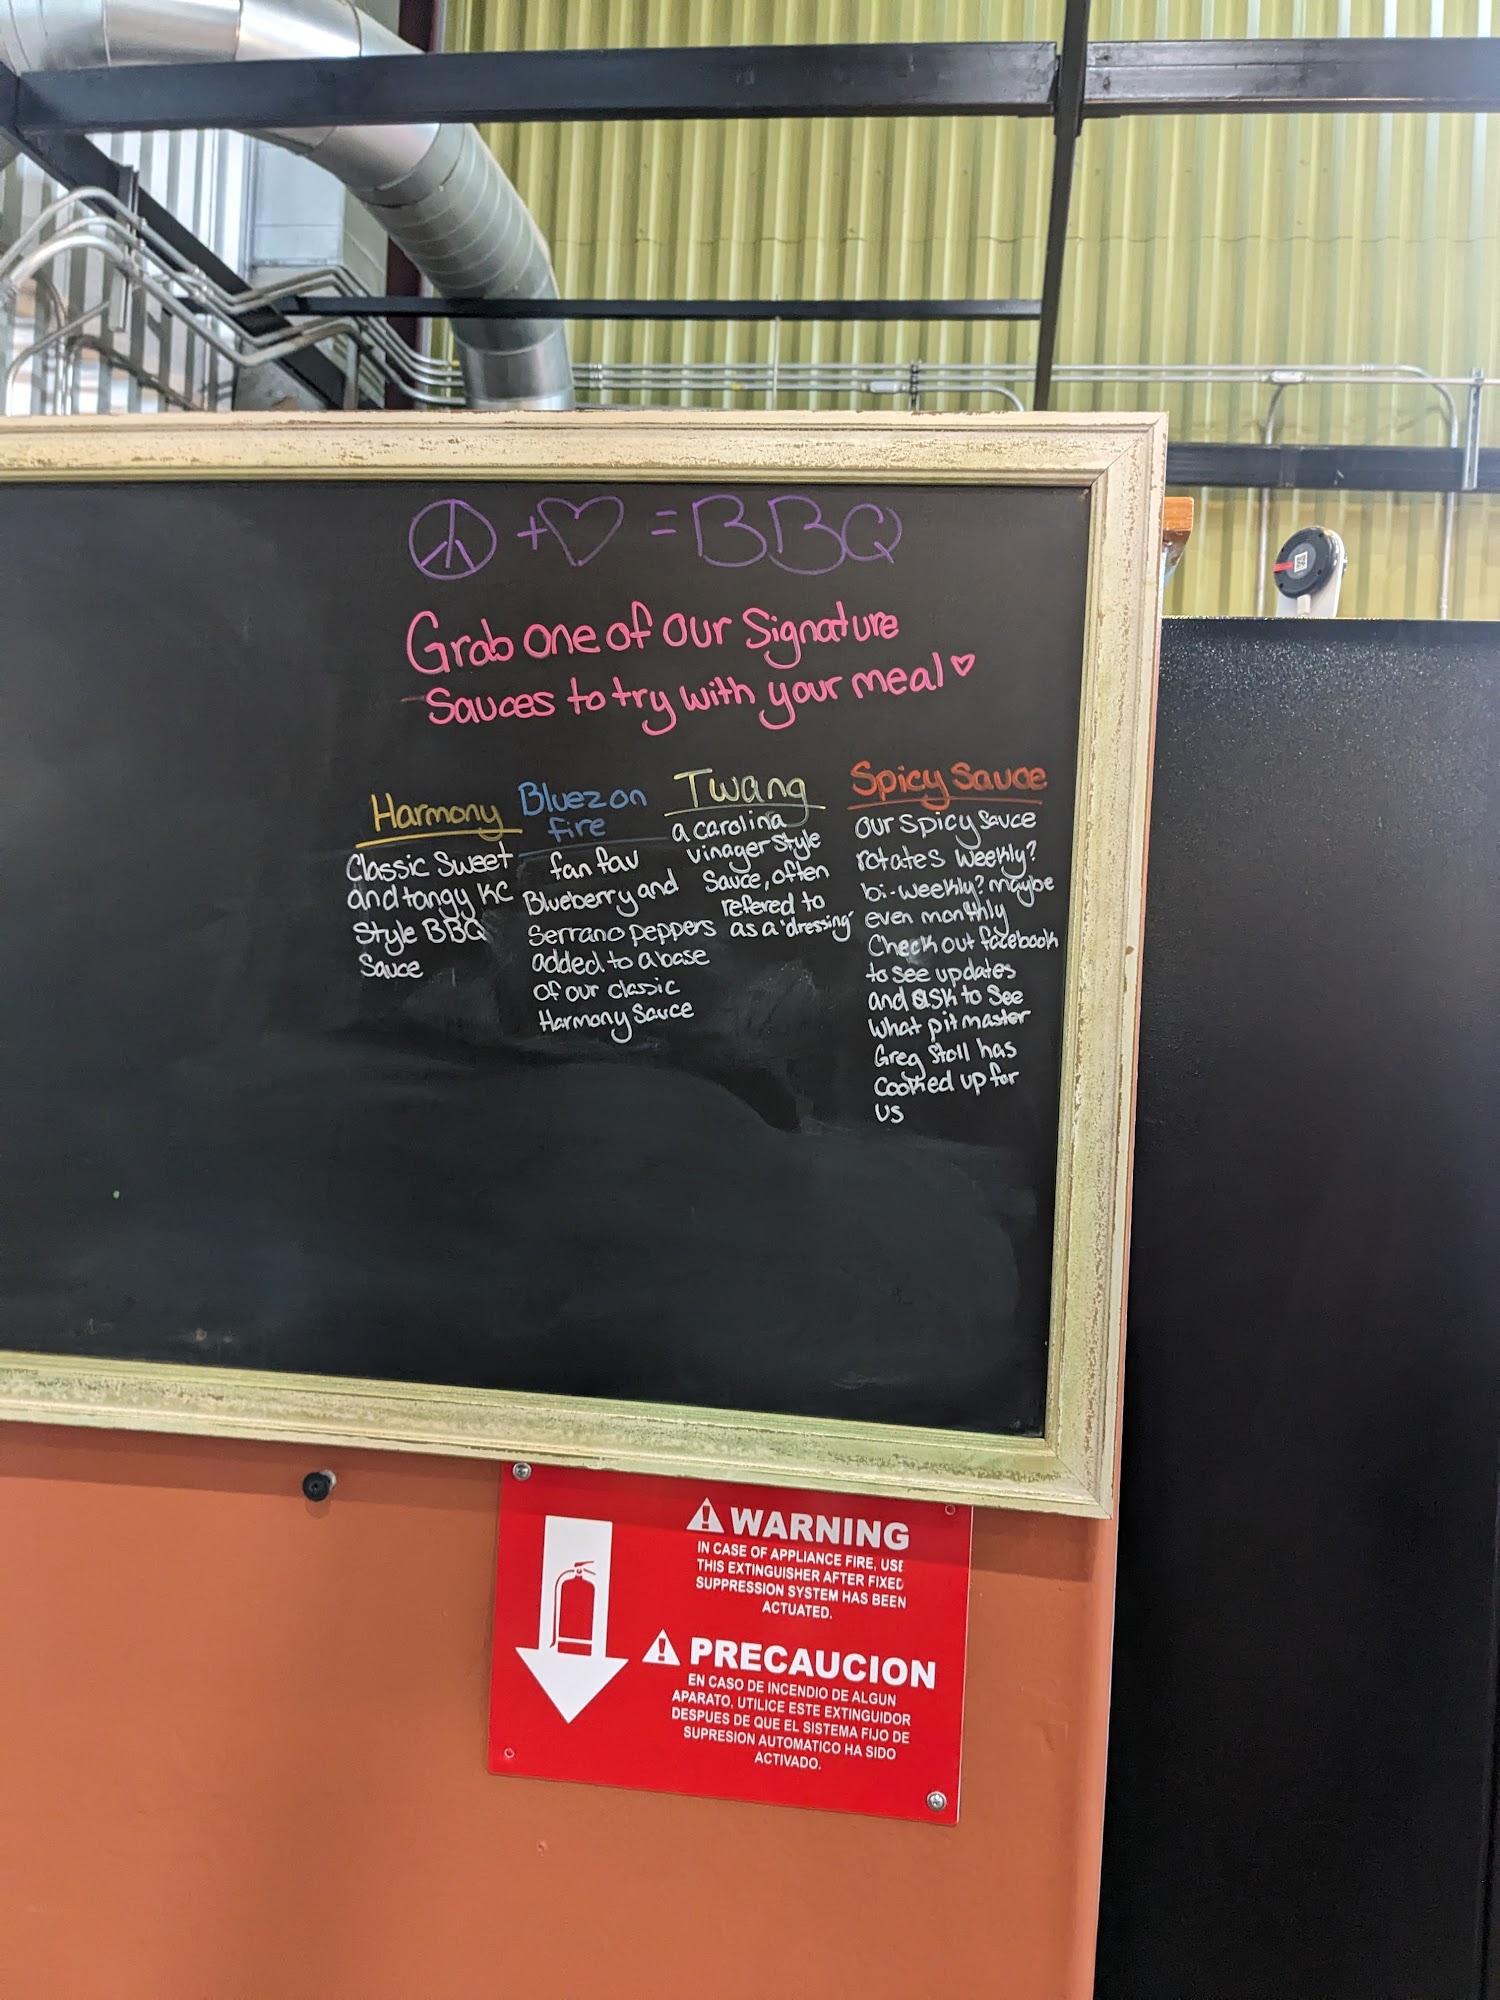 ☮ + ♡ = BBQ
Grab one of our Signature
Sauces to try with your meal ♡
Harmony
Classic Sweet
and tangy KC
Style BBQ
Sauce
Bluez on
fire
fan fav
Blueberry and
Serrano peppers
added to a base
of our classic
Harmony Sauce
Twang
a carolina
vinager style
Sauce, often
refered to
as a 'dressing'
Spicy Sauce
our spicy sauce
rotates weekly?
bi-weekly? maybe
even monthly
Check out facebook
to see updates
and ask to see
what pit master
Greg Stoll has
cooked up for
us
WARNING
IN CASE OF APPLIANCE FIRE, USE
THIS EXTINGUISHER AFTER FIXED
SUPPRESSION SYSTEM HAS BEEN
ACTUATED.
PRECAUCION
EN CASO DE INCENDIO DE ALGUN
APARATO, UTILICE ESTE EXTINGUIDOR
DESPUES DE QUE EL SISTEMA FIJO DE
SUPRESION AUTOMATICO HA SIDO
ACTIVADO.